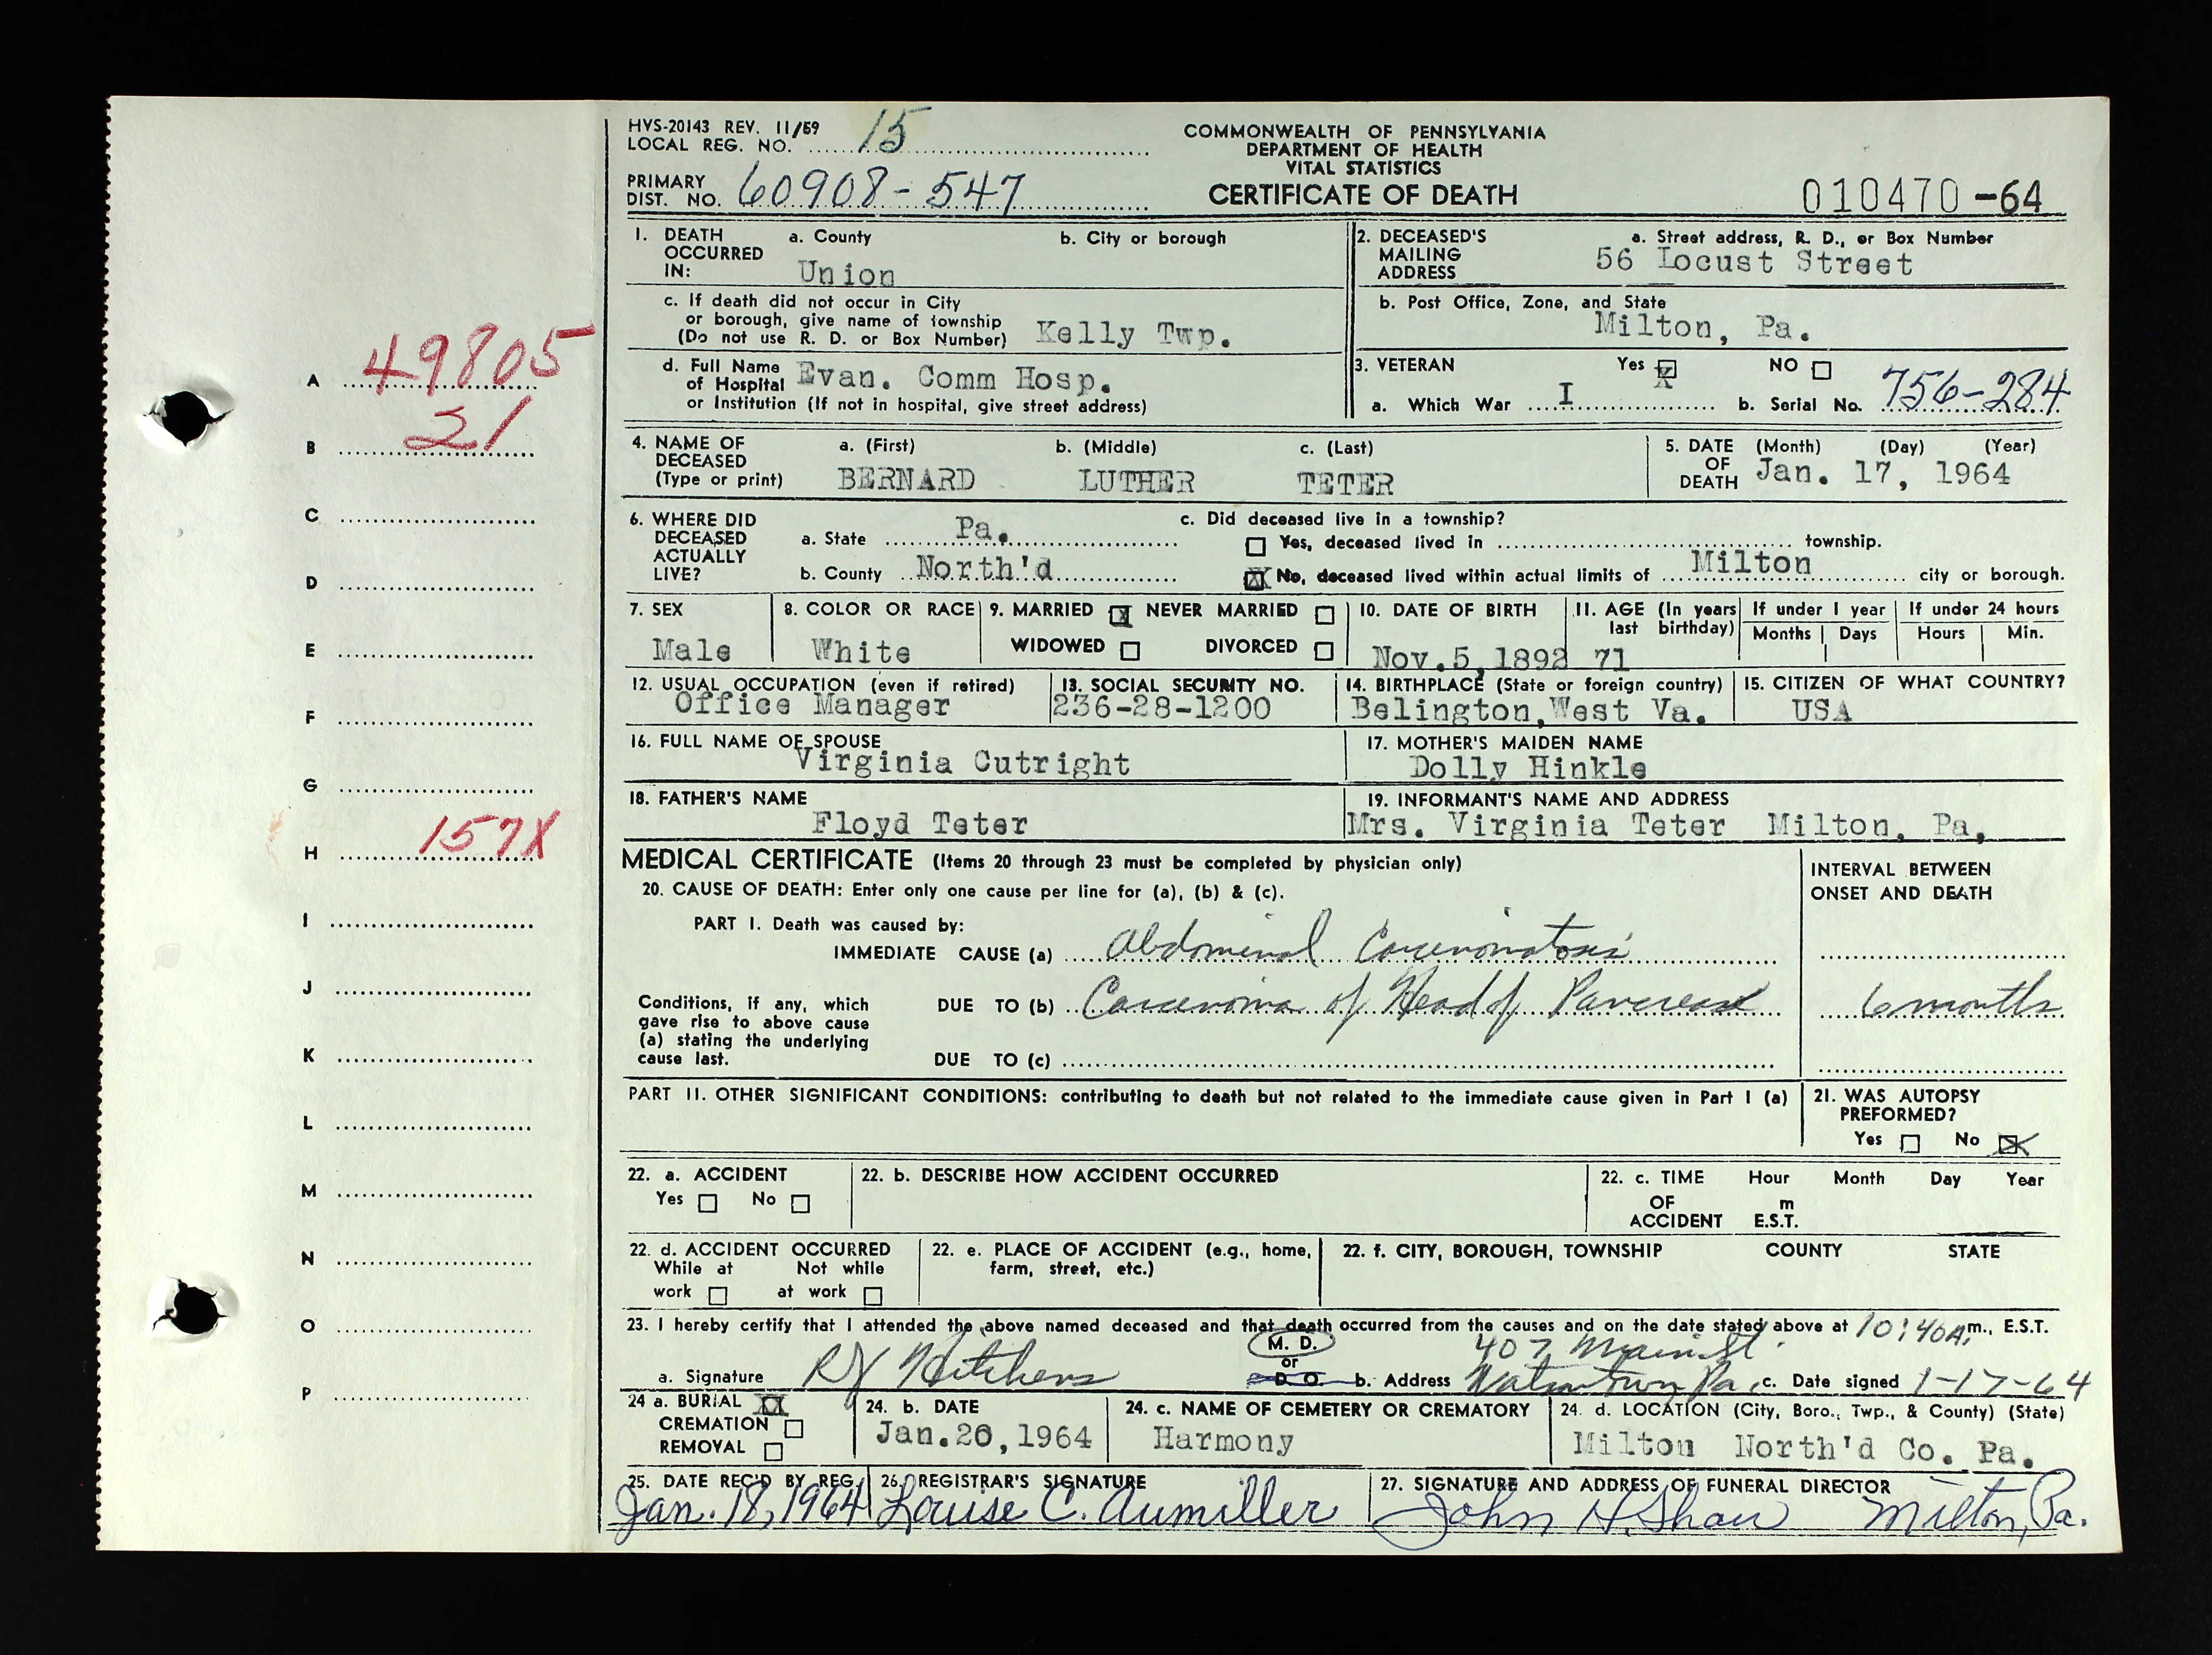 HVS-20143 REV. 11/59
LOCAL REG. NO. 15
PRIMARY DIST. NO. 60908-547
COMMONWEALTH OF PENNSYLVANIA
DEPARTMENT OF HEALTH
VITAL STATISTICS
CERTIFICATE OF DEATH
010470-64
1. DEATH OCCURRED IN: a. County Union b. City or borough
c. If death did not occur in City or borough, give name of township (Do not use R. D. or Box Number) Kelly Twp.
d. Full Name of Hospital or Institution (If not in hospital, give street address) Evan. Comm Hosp.
2. DECEASED'S MAILING ADDRESS a. Street address, R. D., or Box Number 56 Locust Street
b. Post Office, Zone, and State Milton, Pa.
3. VETERAN Yes X NO
a. Which War I b. Serial No. 756-284
4. NAME OF DECEASED (Type or print) a. (First) BERNARD b. (Middle) LUTHER c. (Last) TETER
5. DATE OF DEATH (Month) (Day) (Year) Jan. 17, 1964
6. WHERE DID DECEASED ACTUALLY LIVE? a. State Pa.
b. County North'd
c. Did deceased live in a township?
Yes, deceased lived in township.
X No, deceased lived within actual limits of Milton city or borough.
7. SEX Male
8. COLOR OR RACE White
9. MARRIED X NEVER MARRIED
WIDOWED DIVORCED
10. DATE OF BIRTH Nov.5,1892
11. AGE (In years last birthday) 71
If under 1 year Months Days
If under 24 hours Hours Min.
12. USUAL OCCUPATION (even if retired) Office Manager
13. SOCIAL SECURITY NO. 236-28-1200
14. BIRTHPLACE (State or foreign country) Belington,West Va.
15. CITIZEN OF WHAT COUNTRY? USA
16. FULL NAME OF SPOUSE Virginia Cutright
17. MOTHER'S MAIDEN NAME Dolly Hinkle
18. FATHER'S NAME Floyd Teter
19. INFORMANT'S NAME AND ADDRESS Mrs. Virginia Teter Milton, Pa.
MEDICAL CERTIFICATE (Items 20 through 23 must be completed by physician only)
20. CAUSE OF DEATH: Enter only one cause per line for (a), (b) & (c).
INTERVAL BETWEEN ONSET AND DEATH
PART I. Death was caused by:
IMMEDIATE CAUSE (a) Abdominal Carcinomatosis
Conditions, if any, which gave rise to above cause (a) stating the underlying cause last.
DUE TO (b) Carcinoma of Head of Pancreas 6 months
DUE TO (c)
PART II. OTHER SIGNIFICANT CONDITIONS: contributing to death but not related to the immediate cause given in Part I (a)
21. WAS AUTOPSY PREFORMED?
Yes No X
22. a. ACCIDENT
Yes No
22. b. DESCRIBE HOW ACCIDENT OCCURRED
22. c. TIME OF ACCIDENT Hour m E.S.T. Month Day Year
22. d. ACCIDENT OCCURRED
While at work Not while at work
22. e. PLACE OF ACCIDENT (e.g., home, farm, street, etc.)
22. f. CITY, BOROUGH, TOWNSHIP COUNTY STATE
23. I hereby certify that I attended the above named deceased and that death occurred from the causes and on the date stated above at 10:40 A.m., E.S.T.
a. Signature Hitchens M. D. or D. O. b. Address 407 Main St. Watsontown Pa. c. Date signed 1-17-64
24 a. BURIAL XX
CREMATION
REMOVAL
24. b. DATE Jan.20,1964
24. c. NAME OF CEMETERY OR CREMATORY Harmony
24. d. LOCATION (City, Boro., Twp., & County) (State) Milton North'd Co. Pa.
25. DATE REC'D BY REG. Jan. 18, 1964
26. REGISTRAR'S SIGNATURE Louise C. Aumiller
27. SIGNATURE AND ADDRESS OF FUNERAL DIRECTOR John H. Shaw Milton, Pa.
A 49805
21
B
C
D
E
F
G
H 157X
I
J
K
L
M
N
O
P